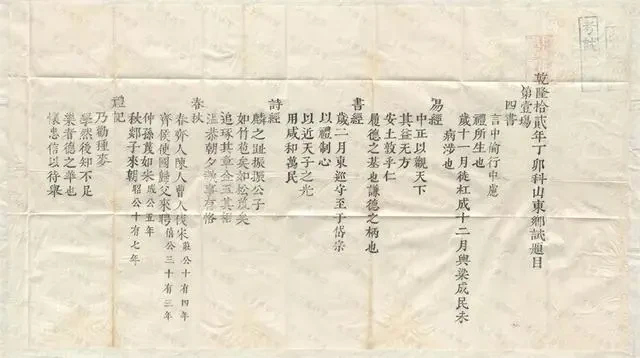 乾隆拾貳年丁卯科山東鄉試題目
第壹場
四書
言中倫行中慮
禮所生也
歲十一月徒杠成十二月輿梁成民未
病涉也
易經
中正以觀天下
其益无方
安土敦乎仁
履德之基也謙德之柄也
書經
歲二月東巡守至于岱宗
以禮制心
以近天子之光
用咸和萬民
詩經
麟之趾振振公子
如竹苞矣如松茂矣
追琢其章金玉其相
溫恭朝夕執事有恪
春秋
春齊人陳人曹人伐宋莊公十有四年
齊侯使國歸父來聘僖公三十有三年
仲孫蔑如宋成公五年
秋郯子來朝昭公十有七年
禮記
乃勸種麥
學然後知不足
樂者德之華也
懷忠信以待舉